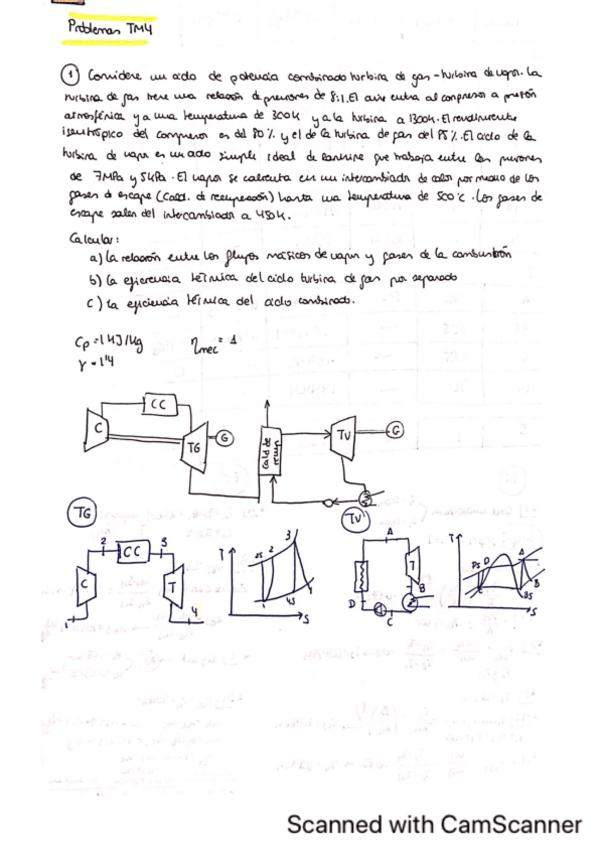 Problemas TM4
① Considere un ciclo de potencia combinado turbina de gas - turbina de vapor. La
turbina de gas tiene una relación de presiones de 8:1. El aire entra al compresor a presión
atmosférica y a una temperatura de 300K y a la turbina a 1300K. El rendimiento
isentrópico del compresor es del 80% y el de la turbina de gas del 85%. El ciclo de la
turbina de vapor es un ciclo simple ideal de Rankine que trabaja entre las presiones
de 7MPa y 5kPa. El vapor se calienta en un intercambiador de calor por medio de los
gases de escape (Cald. de recuperación) hasta una temperatura de 500°C. Los gases de
escape salen del intercambiador a 450K.
Calcular:
a) la relación entre los flujos másicos de vapor y gases de la combustión
b) la eficiencia térmica del ciclo turbina de gas por separado
c) la eficiencia térmica del ciclo combinado.
Cp = 1 kJ/kg ηmec = 1
γ = 1'4
CC
C TG G cald de recup TV G
TG TV
2 CC 3 C T 1 4
T 2s 2 3 1 4s 4 S
A T B D C
T Ds D A C B Bs S
Scanned with CamScanner